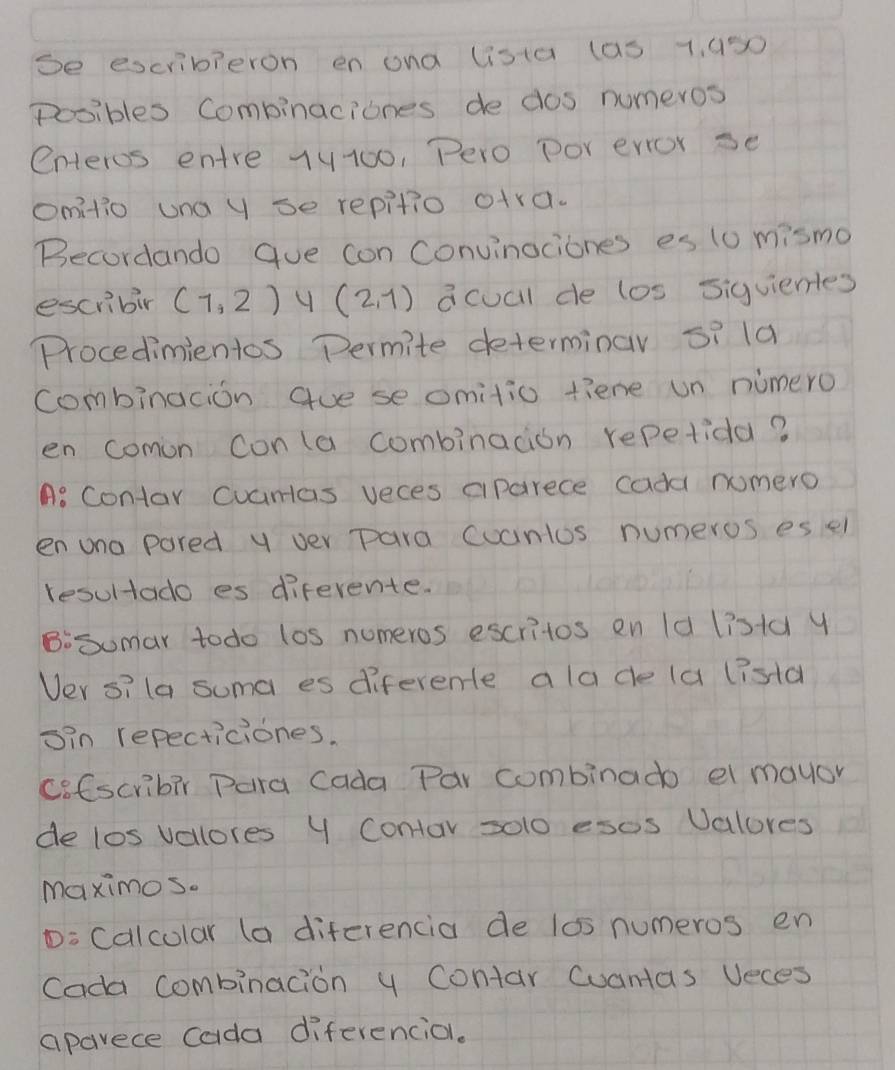 Se escribieron en una lista las 1.950
Posibles Combinaciones de dos numeros
Enteros entre 1 y 100, Pero por error se
omitio una y se repitio otra.
Recordando que con Convinaciones es lo mismo
escribir (1,2) y (2,1) a cual de los siguientes
Procedimientos Permite determinar si la
combinación que se omitio tiene un número
en comun con la combinación repetida?
A: Contar cuantas veces aparece cada numero
en una pared y ver para cuantos numeros es el
resultado es diferente.
B: Sumar todo los numeros escritos en la lista y
Ver si la suma es diferente a la de la lista
sin repecticiónes.
C: Escribir Para Cada Par combinado el mayor
de los valores y contar solo esos Valores
maximos.
D: Calcular la diferencia de los numeros en
Cada combinación y Contar Cuantas Veces
aparece cada diferencia.